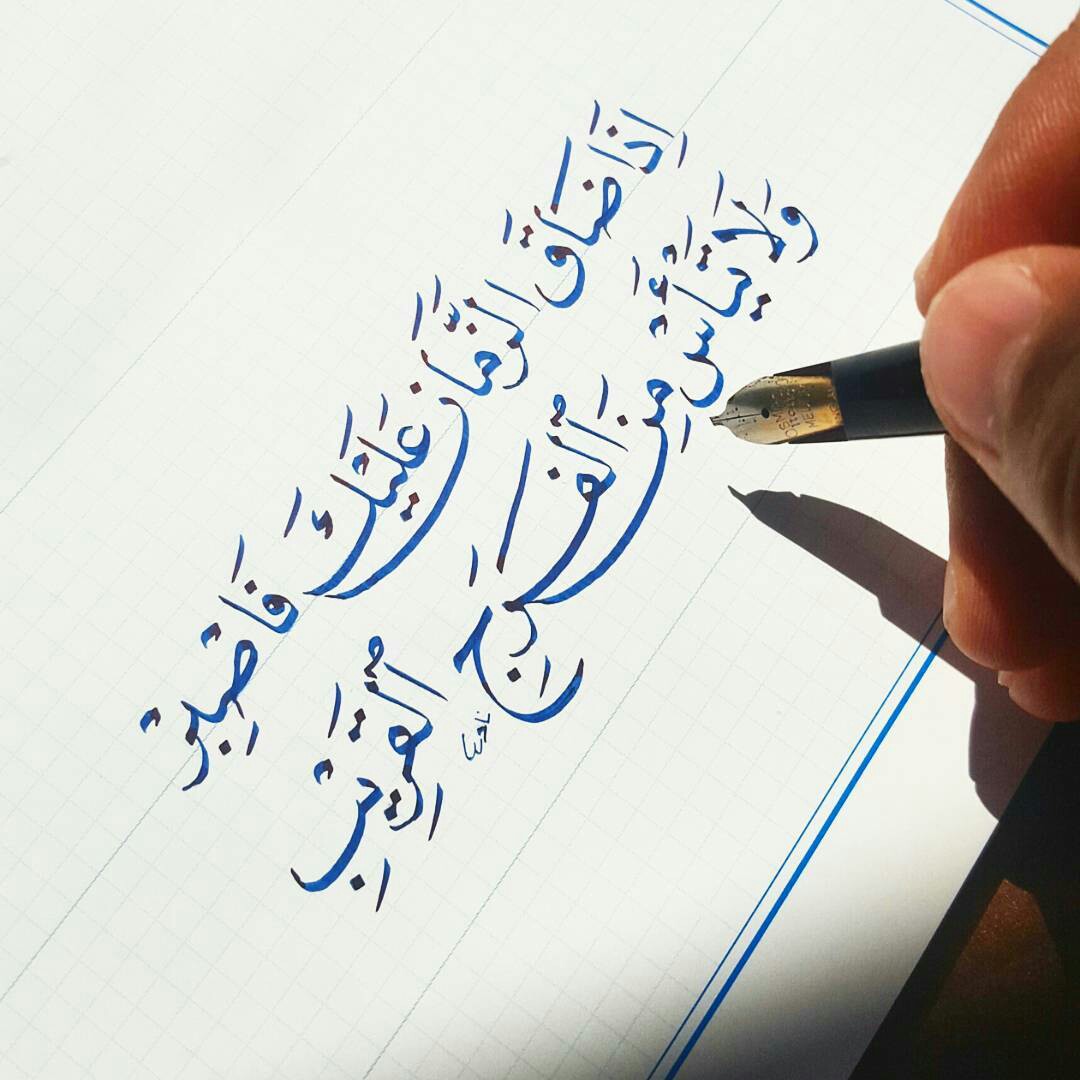 إِذَا ضَاقَ الزَّمَانُ عَلَيْكَ فَاصْبِرْ
وَلَا تَيْأَسْ مِنَ ٱلْفَرَجِ ٱلْقَرِيْبِ